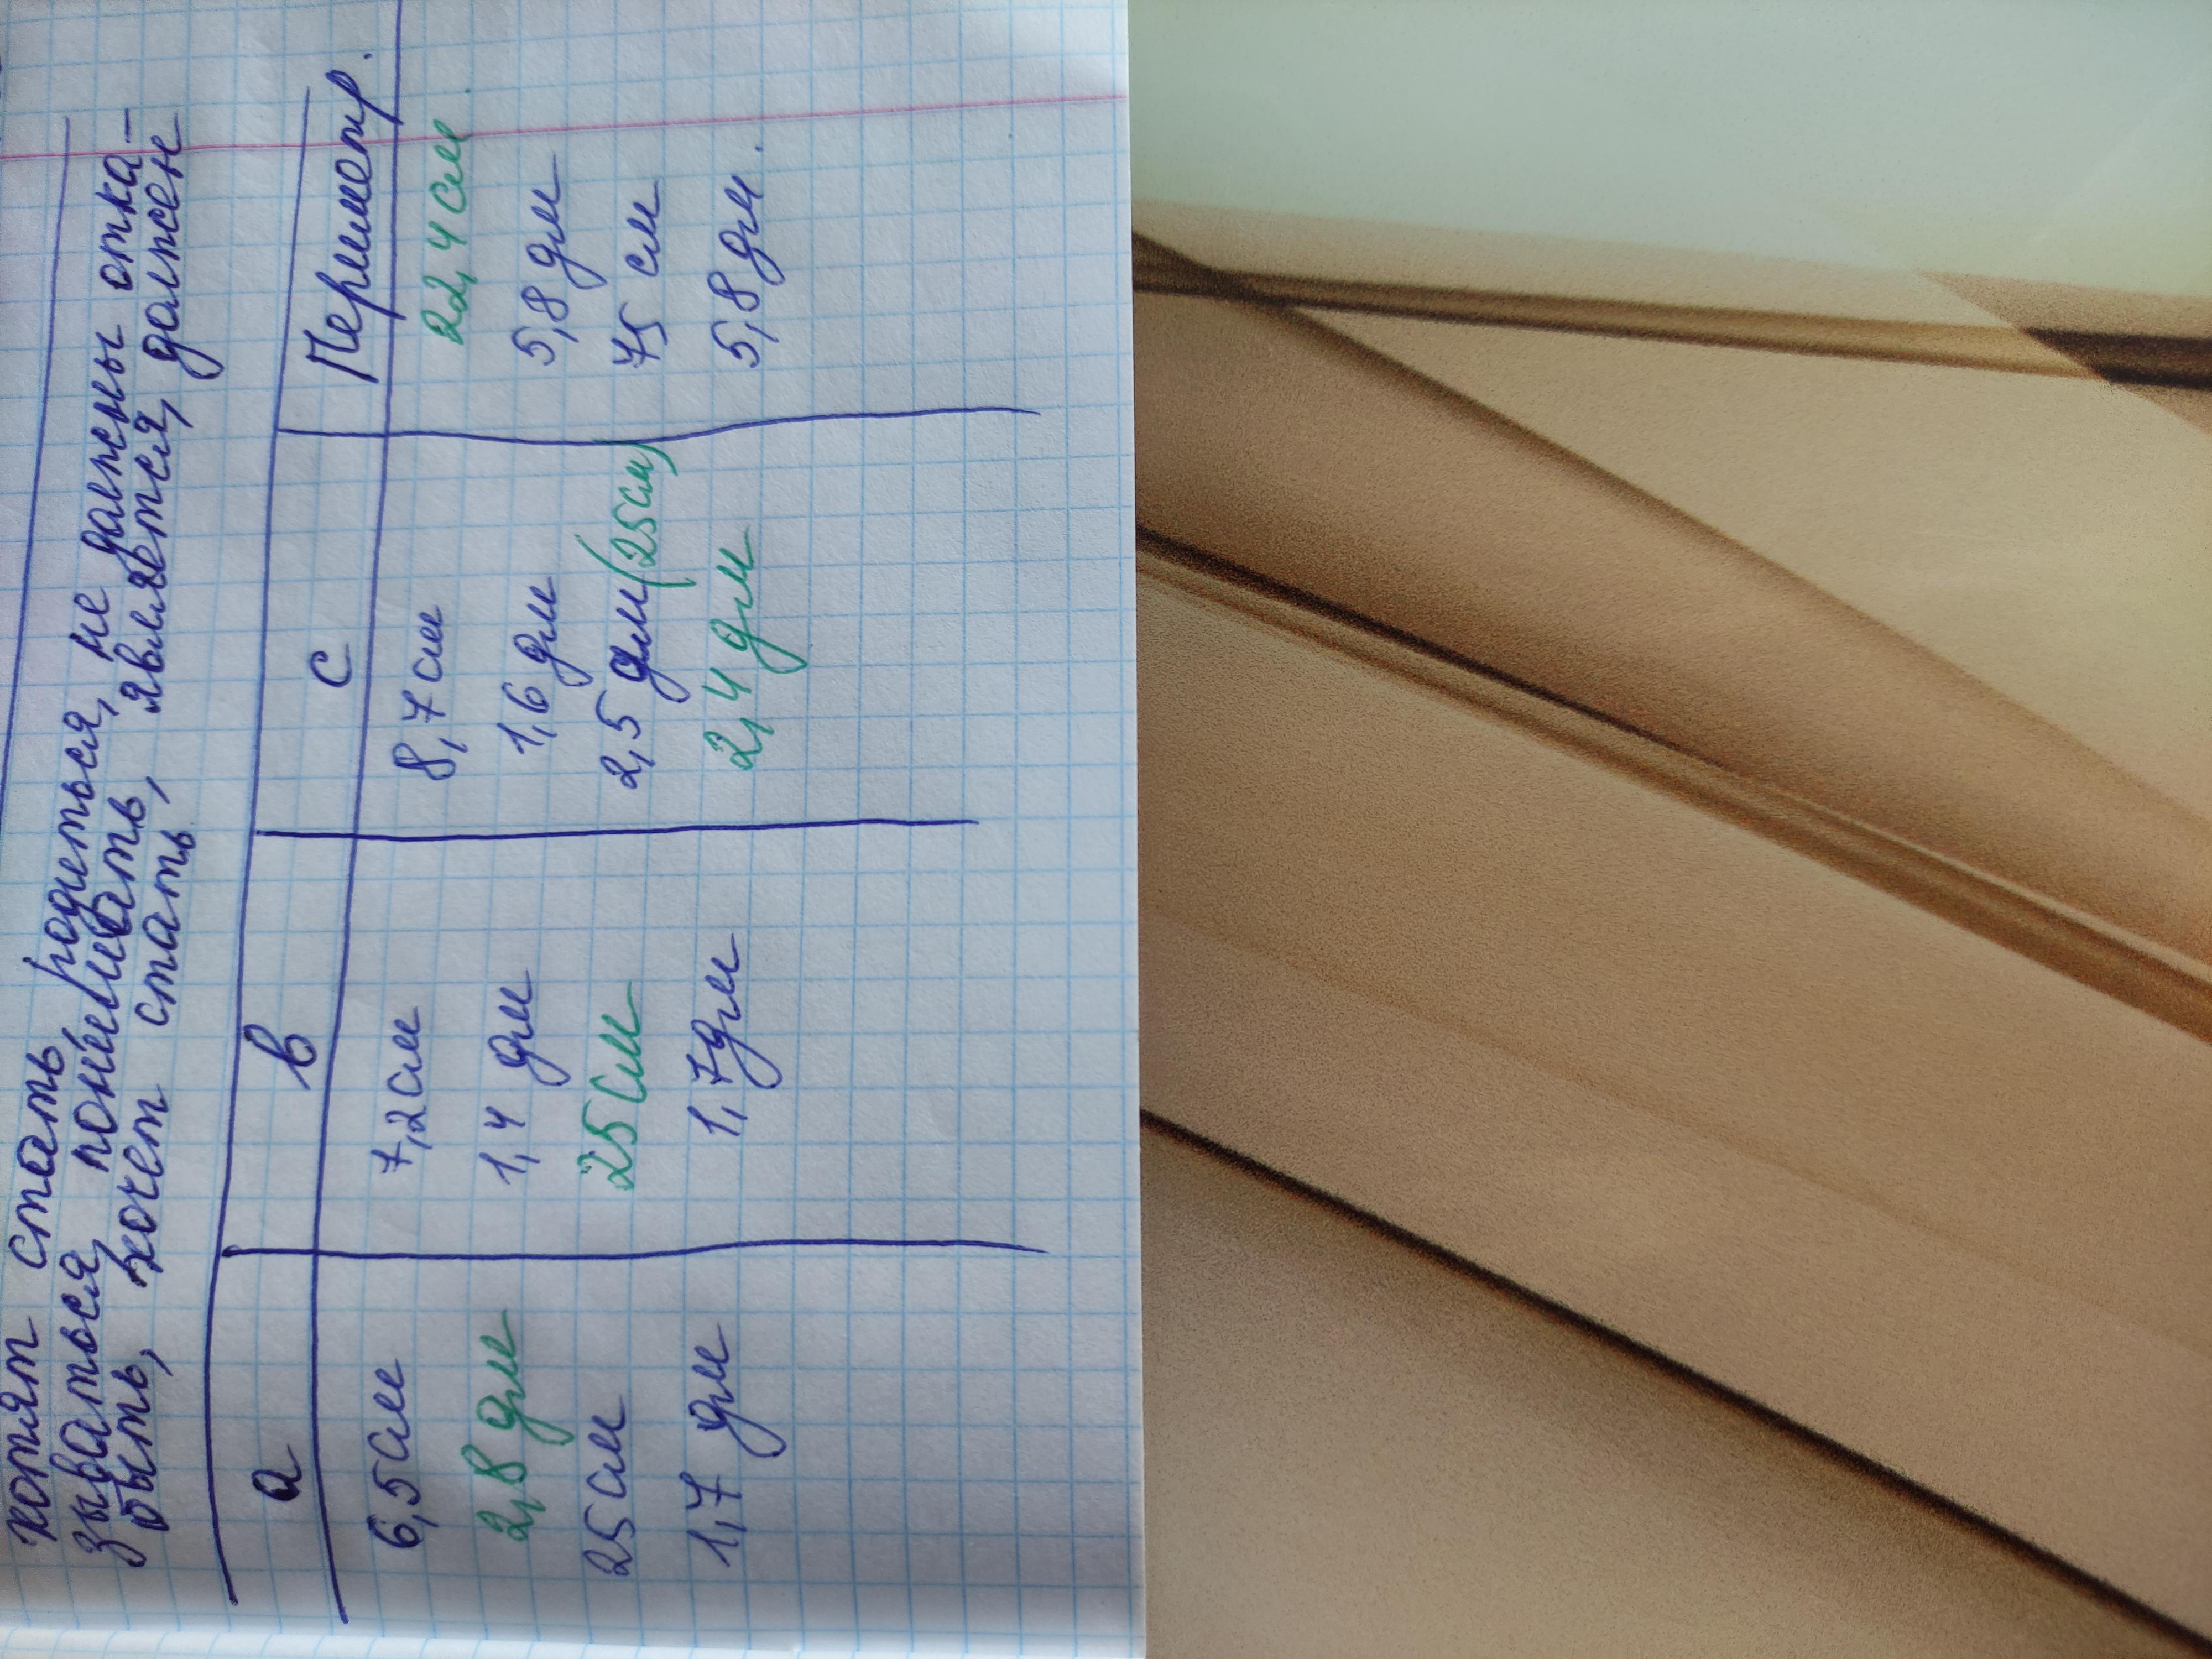 хотят стать родиться, не должны отка-
зываться, понимать, является, должен
быть, хочет стать,
а в с Периметр.
6,5см 7,2см 8,7см 22,4см
2,8 дм 1,4 дм 1,6 дм 5,8 дм
25см 25см 2,5 дм (25см) 75 см
1,7 дм 1,7дм 2,4 дм 5,8 дм.